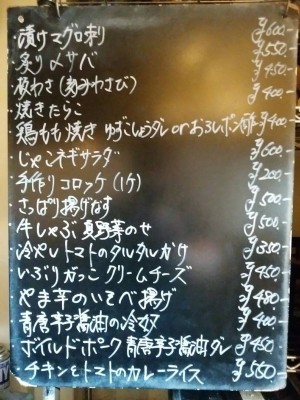 ・漬けマグロ刺 ¥600-
・炙り〆サバ ¥550-
・板わさ(刻みわさび) ¥450-
・焼きたらこ ¥400-
・鶏もも焼き ゆずこしょうダレ or おろしポン酢 ¥400-
・じゃこネギサラダ ¥600-
・手作りコロッケ(1ケ) ¥200-
・さっぱり揚げなす ¥500-
・牛しゃぶ 夏野菜のせ ¥500-
・冷やしトマトのタルタルかけ ¥350-
・いぶりがっこクリームチーズ ¥450-
・やま芋のいそべ揚げ ¥480-
・青唐辛子醤油の冷奴 ¥400-
・ボイルドポーク 青唐辛子醤油ダレ ¥450-
・チキンとトマトのカレーライス ¥550-